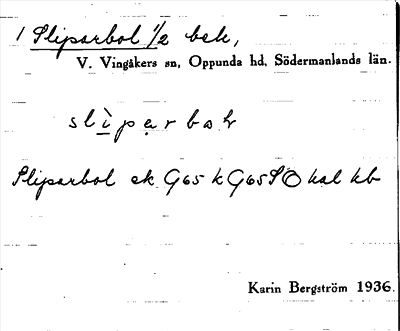 1 Sliparbol 1/2 bek,
V. Vingåkers sn, Oppunda hd, Södermanlands län.
slìpạrbok
Sliparbol ek G65 k G65SO kal kb
Karin Bergström 1936.